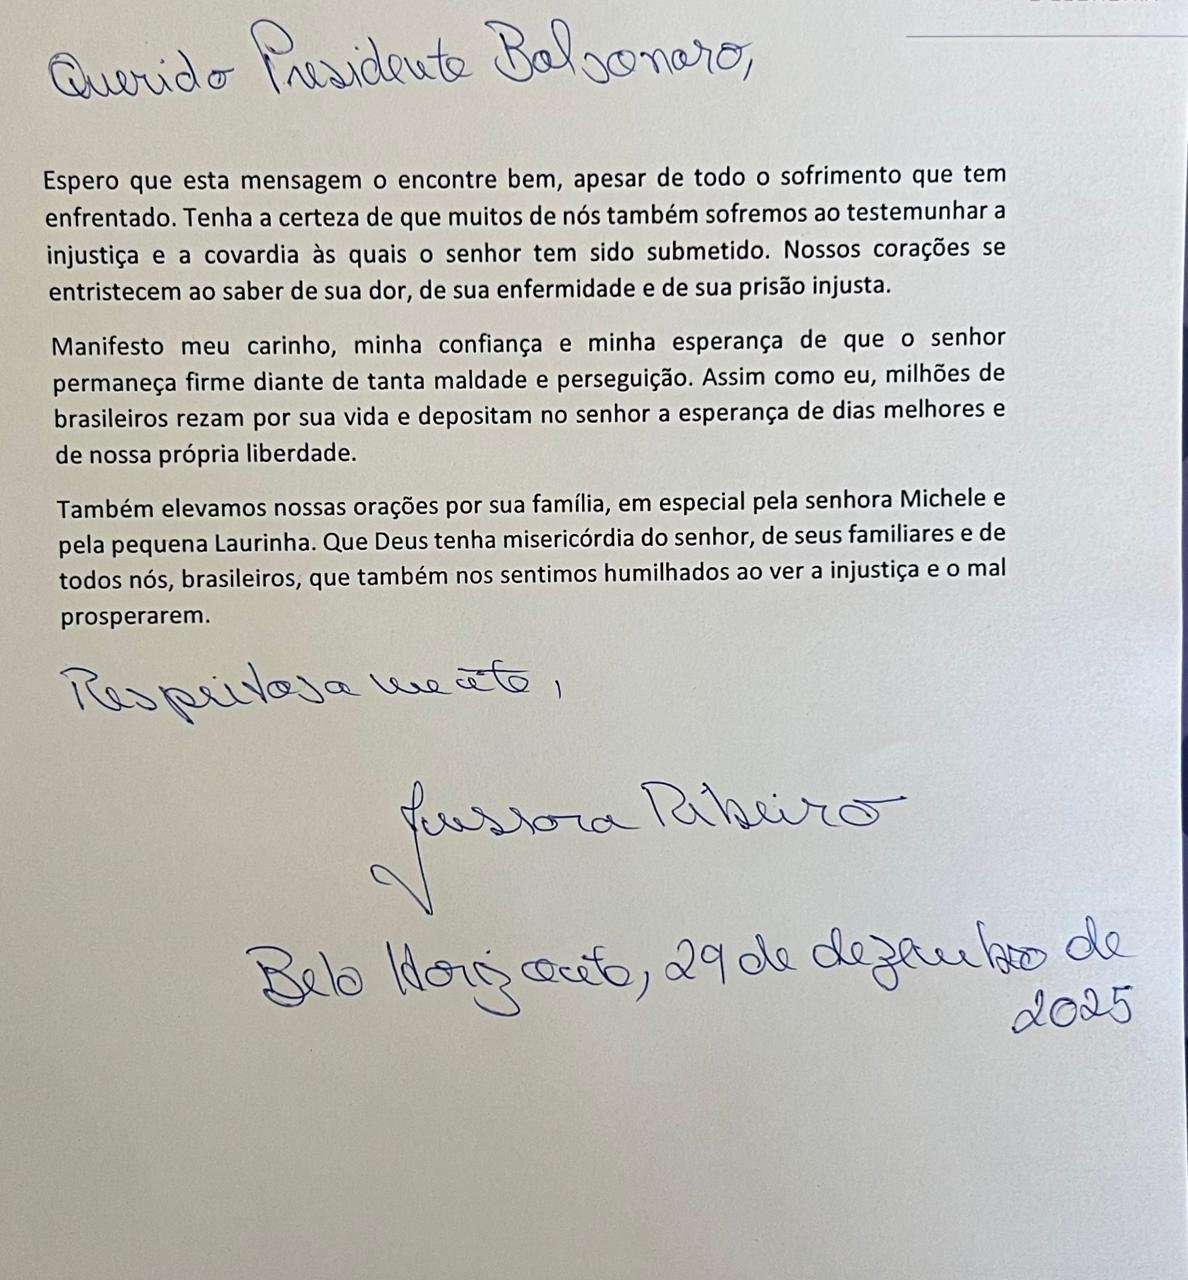 Querido Presidente Bolsonaro,
Espero que esta mensagem o encontre bem, apesar de todo o sofrimento que tem
enfrentado. Tenha a certeza de que muitos de nós também sofremos ao testemunhar a
injustiça e a covardia às quais o senhor tem sido submetido. Nossos corações se
entristecem ao saber de sua dor, de sua enfermidade e de sua prisão injusta.
Manifesto meu carinho, minha confiança e minha esperança de que o senhor
permaneça firme diante de tanta maldade e perseguição. Assim como eu, milhões de
brasileiros rezam por sua vida e depositam no senhor a esperança de dias melhores e
de nossa própria liberdade.
Também elevamos nossas orações por sua família, em especial pela senhora Michele e
pela pequena Laurinha. Que Deus tenha misericórdia do senhor, de seus familiares e de
todos nós, brasileiros, que também nos sentimos humilhados ao ver a injustiça e o mal
prosperarem.
Respeitosamente,
Jussara Ribeiro
Belo Horizonte, 29 de dezembro de
2025